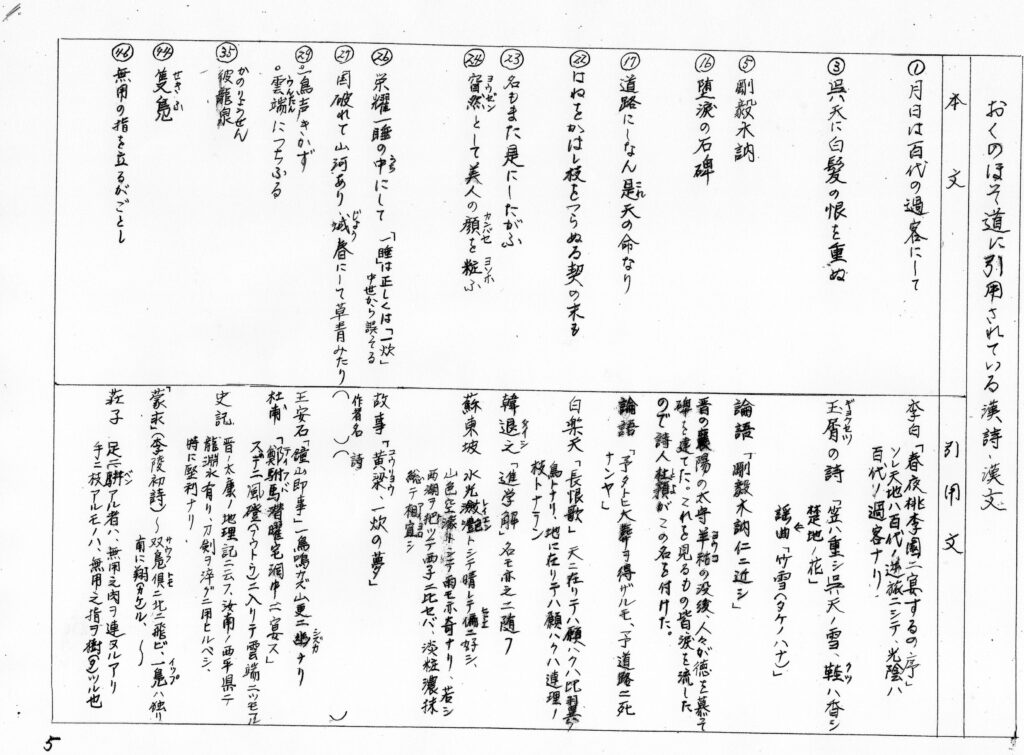 おくのほそ道に引用されている漢詩・漢文
本文
引用文
①月日は百代の過客にして
李白「春夜桃李園ニ宴するの序」
ソレ天地ハ百代ノ逆旅ニシテ、光陰ハ
百代ノ過客ナリ」
③呉天に白髪の恨を重ぬ
玉屑の詩「笠ハ重シ呉天ノ雪、鞋ハ香シ
ギョクセツ
クツ
楚地ノ花」
謡曲「竹雪(タケノハナ)」
⑤剛毅木訥
論語「剛毅木訥仁ニ近シ」
⑯堕涙の石碑
晋の襄陽の太守羊祜の没後、人々が徳を慕って
ヨウコ
碑を建てた。これを見るもの皆涙を流した
ので詩人杜預がこの名を付けた。
とよ
⑰道路にしなん是天の命なり
これ
論語「予タトヒ大葬ヲ得ザルモ、予道路ニ死
ナンヤ」
㉒はねをかはし枝をつらぬる契の末も
白楽天「長恨歌」天ニ在リテハ願ハクハ比翼ノ
鳥トナリ、地に在リテハ願ハクハ連理ノ
枝トナラン
㉓名もまた是にしたがふ
韓退之「進学解」名モ亦之ニ随フ
タイシ
㉔窅然として美人の顔を粧ふ
ヨウゼン
カンバセ
ヨソホ
蘇東坡 水光瀲灔トシテ晴レテ偏ニ好シ、
山色空濛トシテ雨モ亦奇ナリ、若シ
西湖ヲ把ツテ西子ニ比セバ、淡粧濃抹
総テ相宜シ
㉖栄耀一睡の中にして
うち
「一睡は正しくは「一炊」
中世から誤そる
故事「黄粱一炊の夢」
コウリョウ
作者名( )詩( )
㉗国破れて山河あり 城春にして草青みたり
じょう
㉙。一鳥声きかず
王安石「鐘山即事」一鳥鳴カズ山更ニ幽ナリ
シズカ
。雲端につちふる
うんたん
杜甫「鄭駙馬潜曜宅洞中ニ宴ス」
ていフバ
スデニ風磴(フウトウ)ニ入リテ雲端ニツモル
㉟彼龍泉
かのりょうせん
史記 晋ノ太康ノ地理記ニ云フ、汝南ノ西平県ニ
龍淵水有リ、刀剣ヲ淬グニ用ヒルベシ、
特に堅利ナリ。
㊹隻鳧
せきふ
「蒙求(李陵初詩)~双鳧倶ニ北ニ飛ビ、一鳧ハ独リ
ソウフ
イップ
南に翔ル~
㊻無用の指を立るがごとし
荘子 足ニ駢アル者ハ、無用之肉ヲ連ヌルアリ
ベン
手ニ枝アルモノハ、無用之指ヲ樹ツル也
5